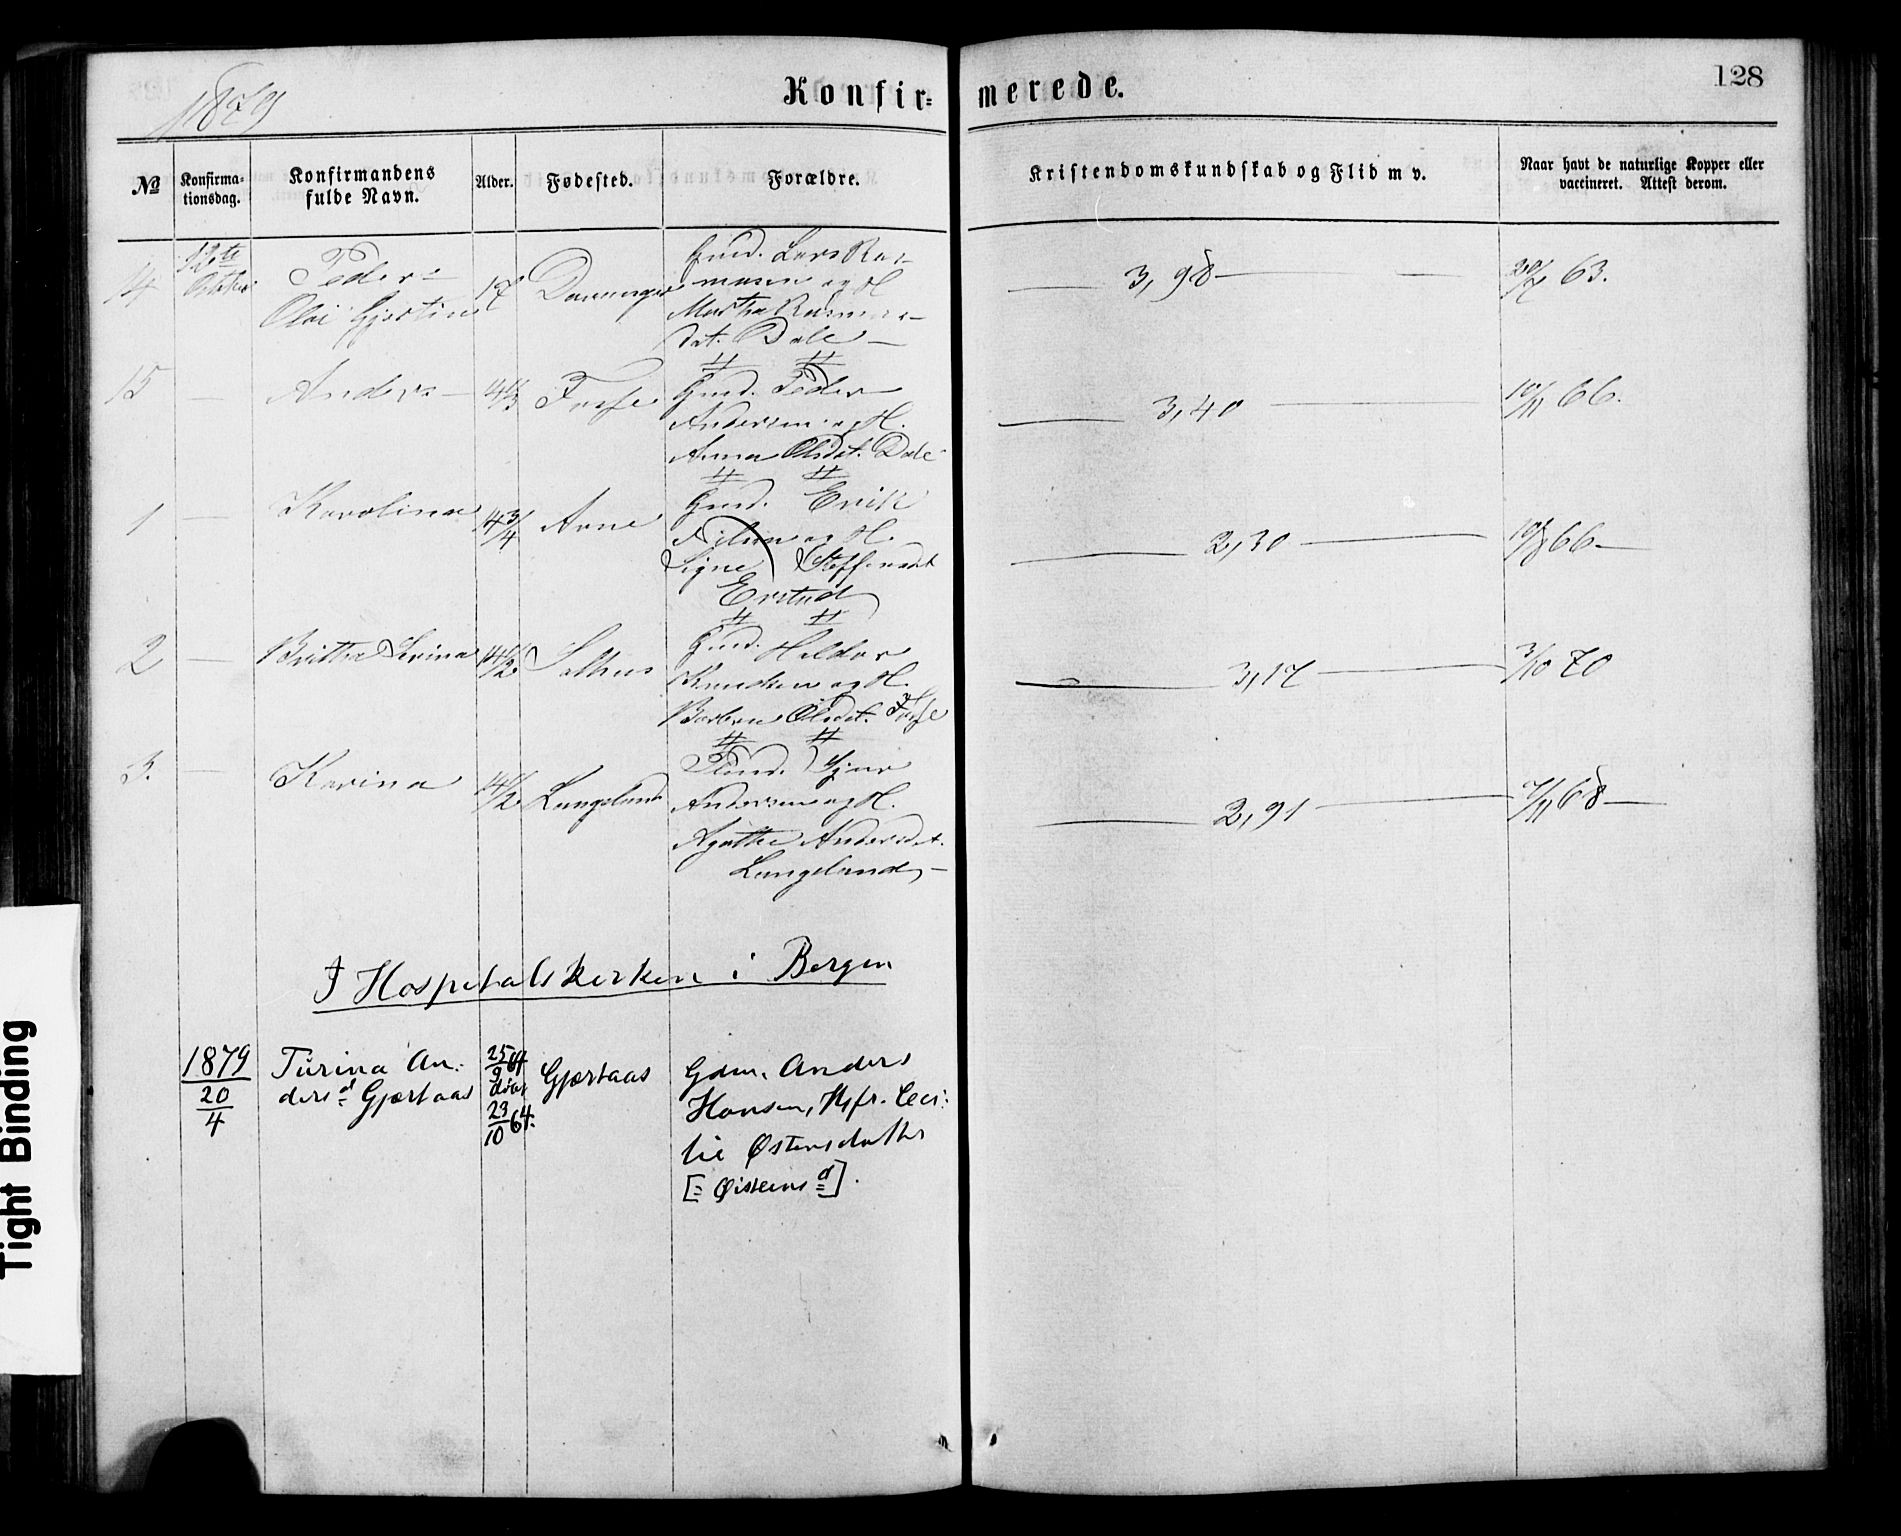 1879
Konfir=
merede.
128
№
Konfirma-
tionsdag.
Konfirmandens
fulde Navn.
Alder.
Fødested.
Forældre.
Kristendomskundskab og Flid m v.
Naar havt de naturlige Kopper eller
vaccineret. Attest derom.
14
12te
Peder
17
Gmd. Lars Ras-
musen og H.
Martha
dat. Dale —
3,98
63.
15
—
Anders —
Fosse
Gmd. Peder
Andersen og H.
Anna Olsdat. Dale
3,40
10/11 66.
1
—
Karolina
14 3/4
Arne
Gmd. Erik
Nilsen og H.
Signe Steffensdt
Erstad
2,30
66 —
2
—
Britha Serina
14 1/2
Gmd. Haldor
Knudsen og H.
Barbra Olsdat. Fosse
3,17
3/10 70
3.
—
Karina
14 1/2
Langeland
Sjur
Andersen og H.
Agathe Andersdt.
Langeland, —
2,91
7/11 68 —
I Hospitalskirken i Bergen
1879
20
4
Turina An-
ders d Gjertaas
25 64
9
døbt
23 64.
10
Gjertaas
Gdm. Anders
Hansen, Hfr. Ceci-
lie Østensdatter
[= Øisteins d].
Tight Binding